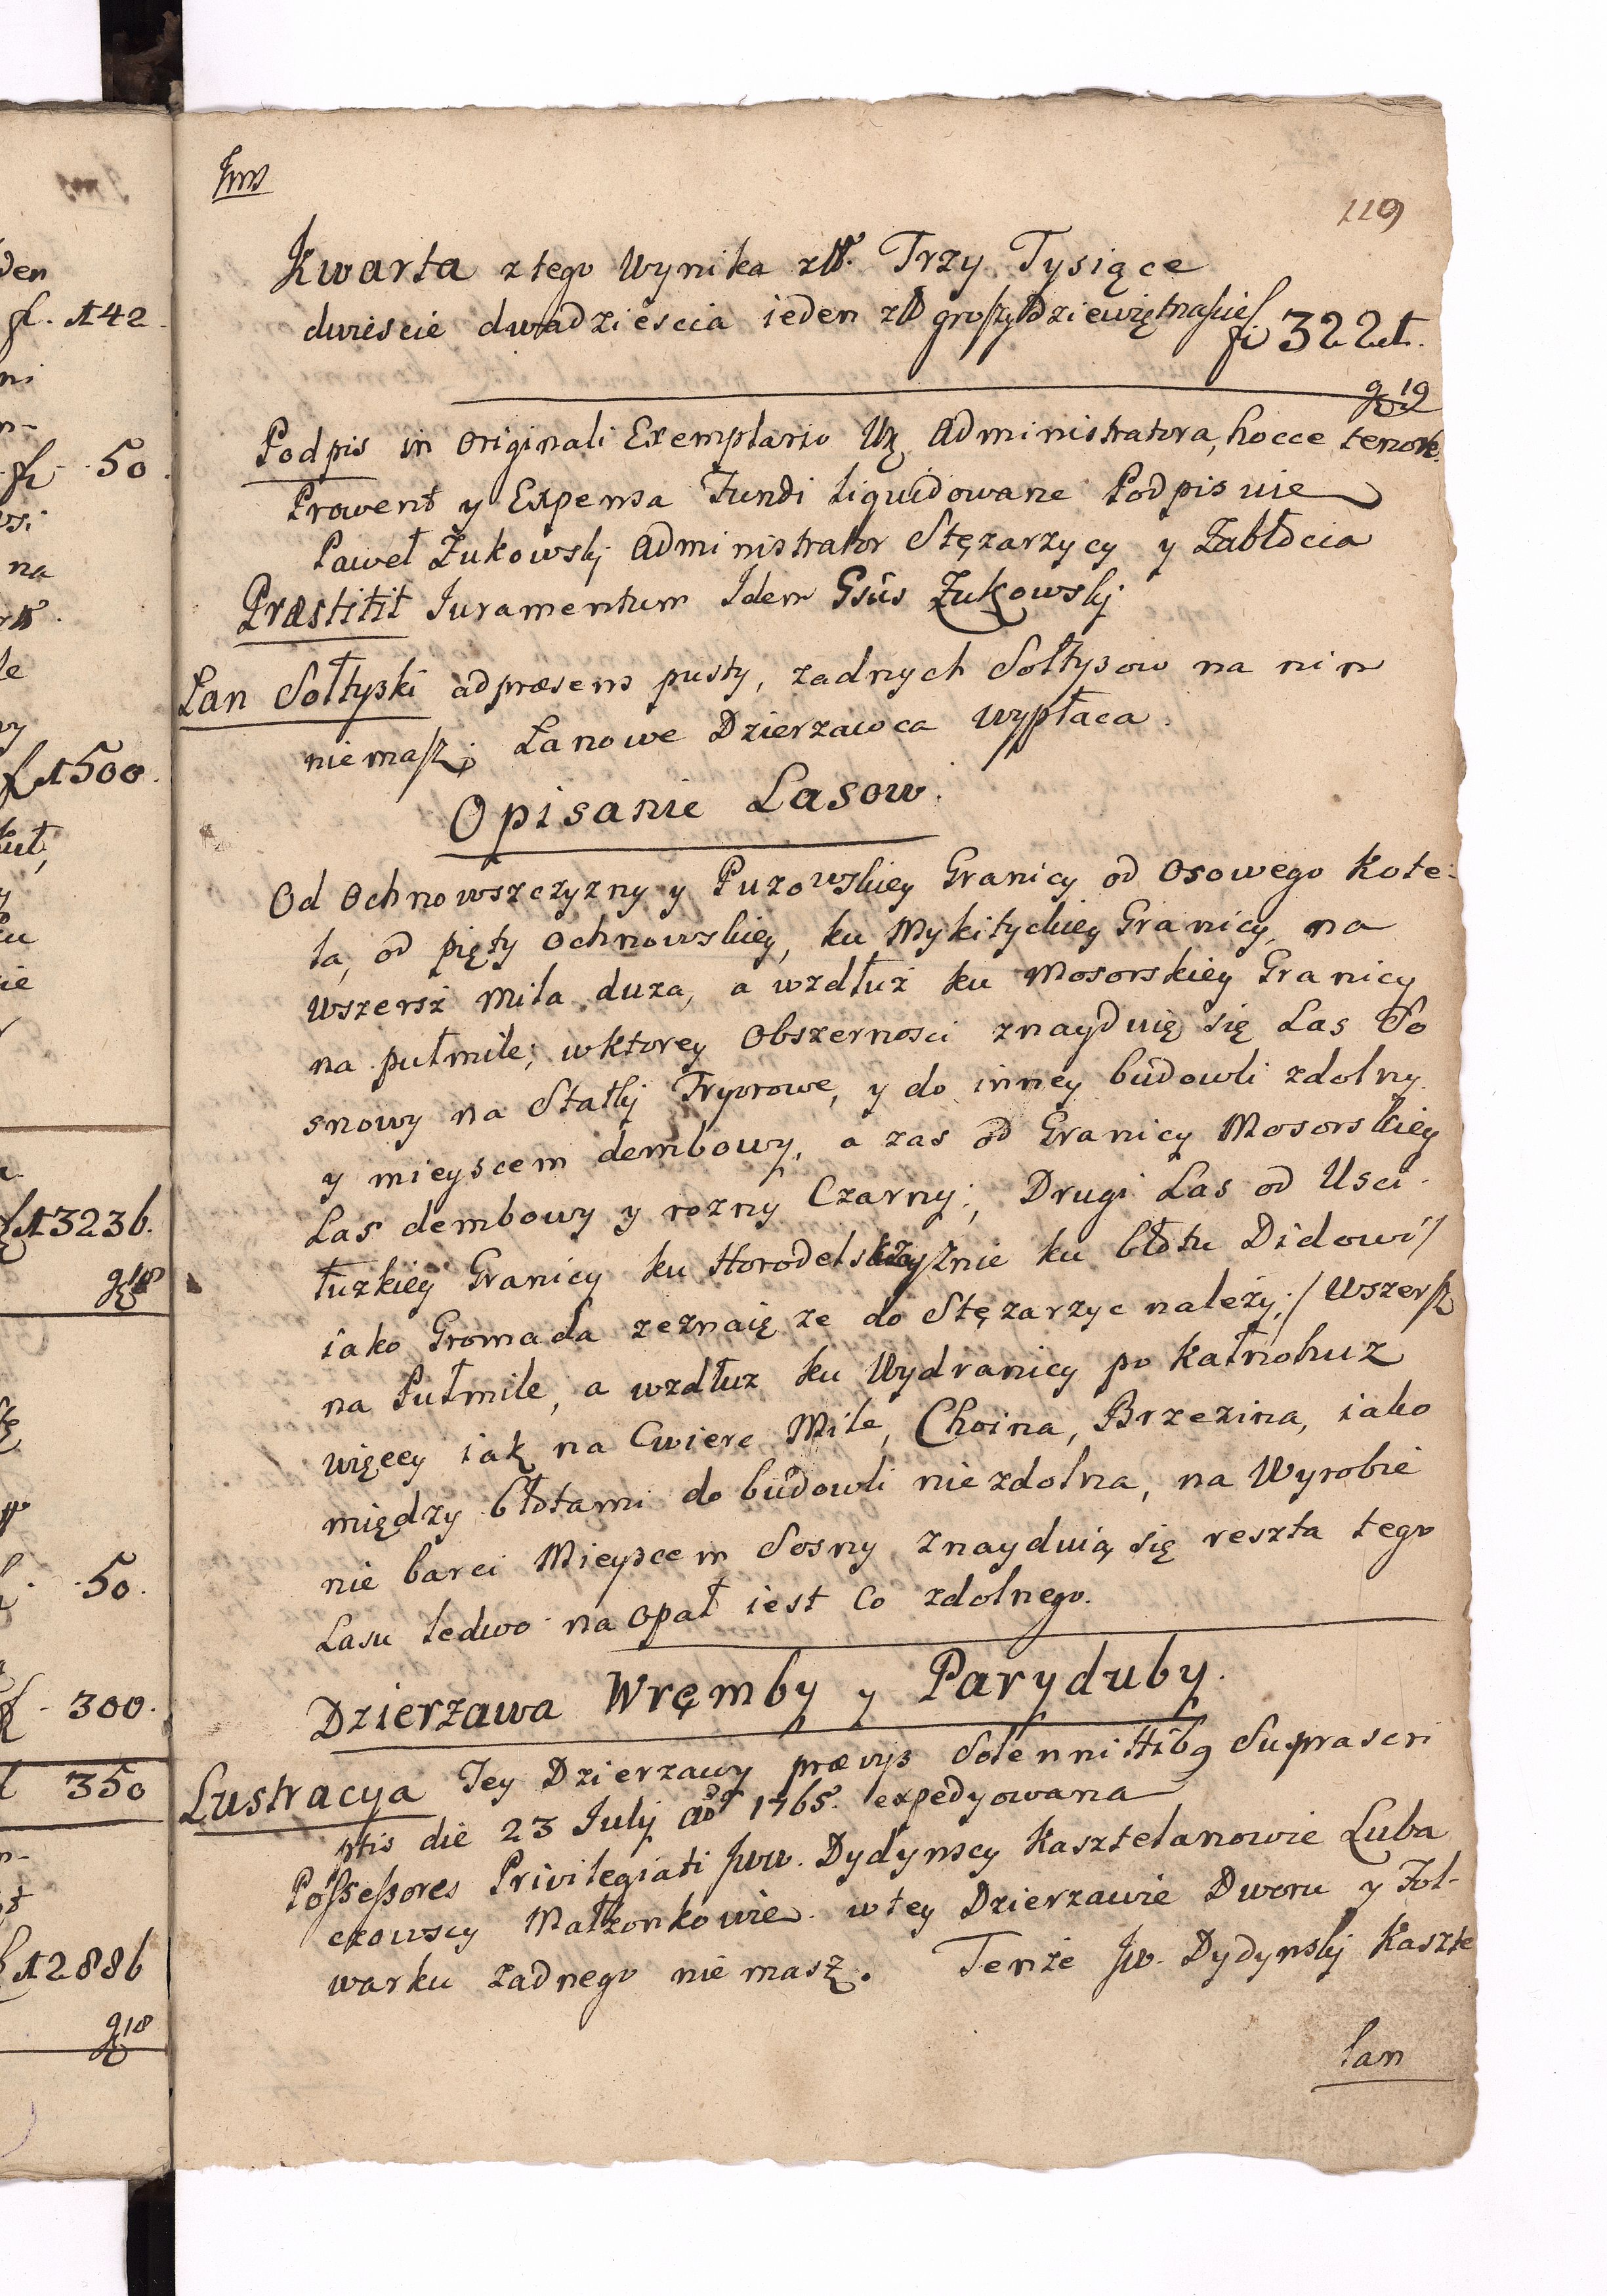 Jms
119
Kwarta z tego Wynika złł. Trzy Tysiące
dwiescie dwadziescia ieden złł groszy Dziewiętnascie/
fl 3221.
g 19
Podpis in Originali Exemplario Ur Administratora, hocce tenore.
Prowent y Expensa Fundi liquidowane Podpisuie
Paweł Żukowsky Administrator Stęzarzycy y Zabłocia
Præstitit Juramentum Idem Gsūs Żukowsky
Łan Sołtyski ad præsens pusty, zadnych Sołtysow na nim
niemasz; Łanowe Dzierzawca wypłaca.
Opisanie Lasow.
Od Ochnowszczyzny y Puzowskiey Granicy od Osowego Kote:
ła, od pięty Ochnowskiey, ku Mykityckiey Granicy, na
wszersz Mila duza, a wzdłuż ku Mosorskiey Granicy
na pułmile; w ktorey Obszernosci znayduię się Las So
snowy na Statki Tryorowe, y do inney budowli zdolny.
y mieyscem dembowy, a zas od Granicy Mosorskiey
Las dembowy y rozny Czarny; Drugi Las od Usci-
łuzkiey Granicy ku Horodelszczyznie ku błotu Didowi/
iako Gromada zeznaię ze do Stęzarzyc należy;/ Wszersz
na Pułmile, a wzdłuz ku Wydranicy po Kałnohuz
więcey iak na Cwierc Mile, Choina, Brzezina, iako
między błotami do budowli niezdolna, na Wyrobie
nie barci Mieyscem Sosny znayduią się reszta tego
Lasu ledwo na opał iest co zdolnego.
Dzierzawa Wręmby y Paryduby.
Lustracya Tey Dzierzawy prævijs Solennittibg Suprascri
ptis die 23 July ad 1765. expedyowana
Possessores Privilegiati Jww. Dydynscy Kasztelanowie Luba
czowscy Małzonkowie. w tey Dzierzawie Dworu y Fol-
warku zadnego nie masz. Tenże Jw. Dydynsky Kaszte
lan
fl. 142.
fl 50.
na
fl 1500.
fl 13236.
g 18
50.
fl 300.
350
fl 12886
g 18